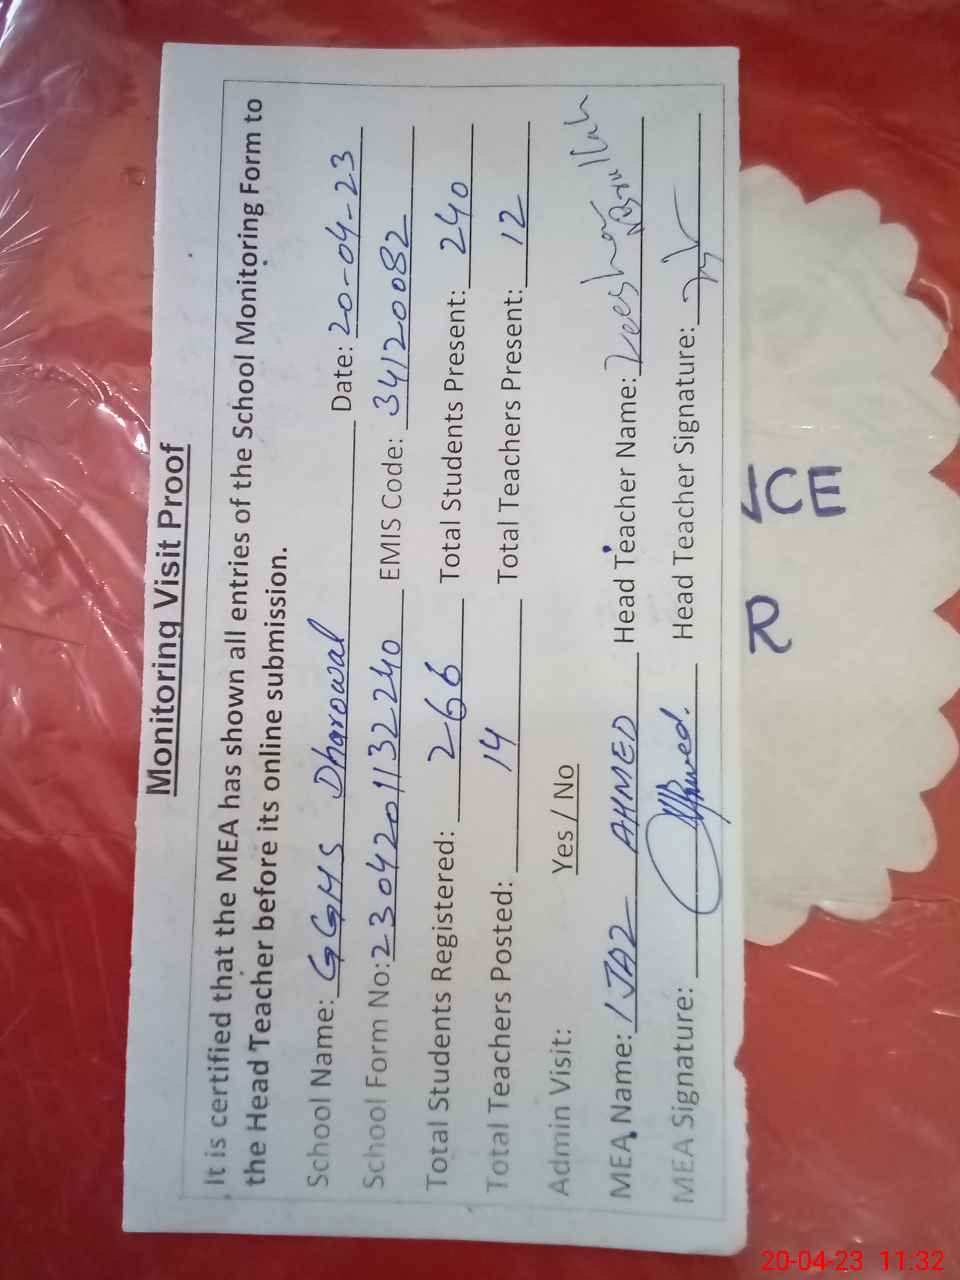 Monitoring Visit Proof
It is certified that the MEA has shown all entries of the School Monitoring Form to
the Head Teacher before its online submission.
School Name: GGHS Dharowal Date: 20-04-23
School Form No: 2304201132240 EMIS Code: 34120082
Total Students Registered: 266 Total Students Present: 240
Total Teachers Posted: 14 Total Teachers Present: 12
Admin Visit: Yes / No
MEA Name: IJAZ AHMED Head Teacher Name:
MEA Signature: Head Teacher Signature:
CE
R
20-04-23 11:32